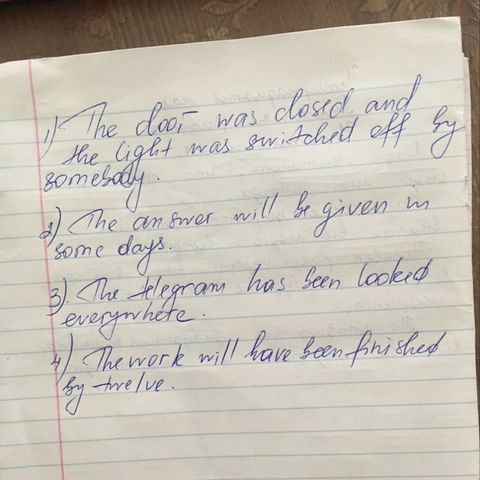 1) The door was closed and
the light was switched off by
somebody.
2) The answer will be given in
some days.
3). The telegram has been looked
everywhere.
4) The work will have been finished
by twelve.